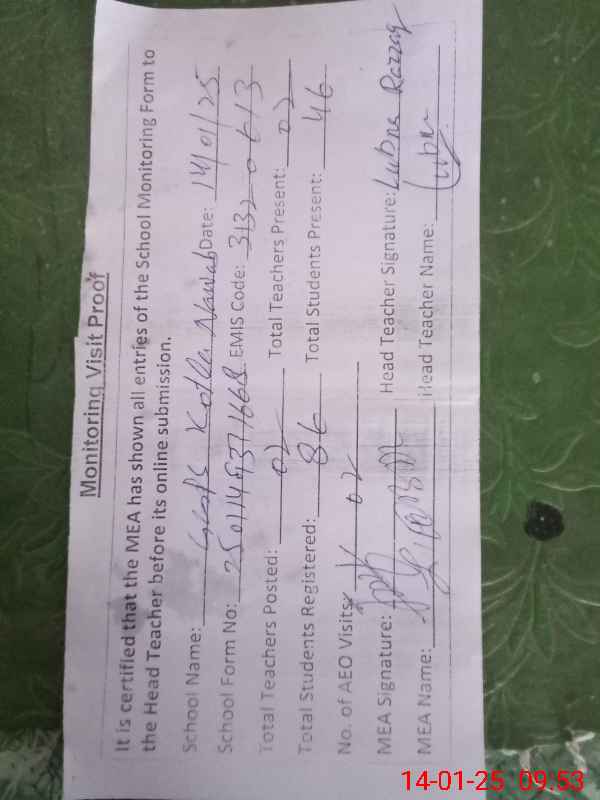 Monitoring Visit Proof
It is certified that the MEA has shown all entries of the School Monitoring Form to
the Head Teacher before its online submission.
School Name: Kotla Nawab Date: 14/01/25
School Form No: EMIS Code: 31320613
Total Teachers Posted: 02 Total Teachers Present: 02
Total Students Registered: 86 Total Students Present: 46
No. of AEO Visits: 02
MEA Signature: Head Teacher Signature: Lubna Razzaq
MEA Name: Head Teacher Name: Lubna
14-01-25 09:53